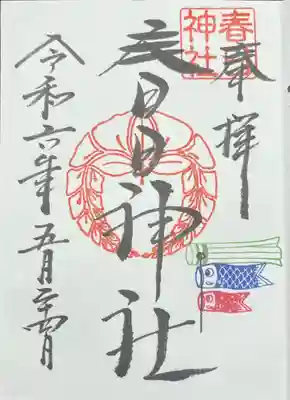 春日
神社
奉拝
春日神社
令和六年五月二十四日